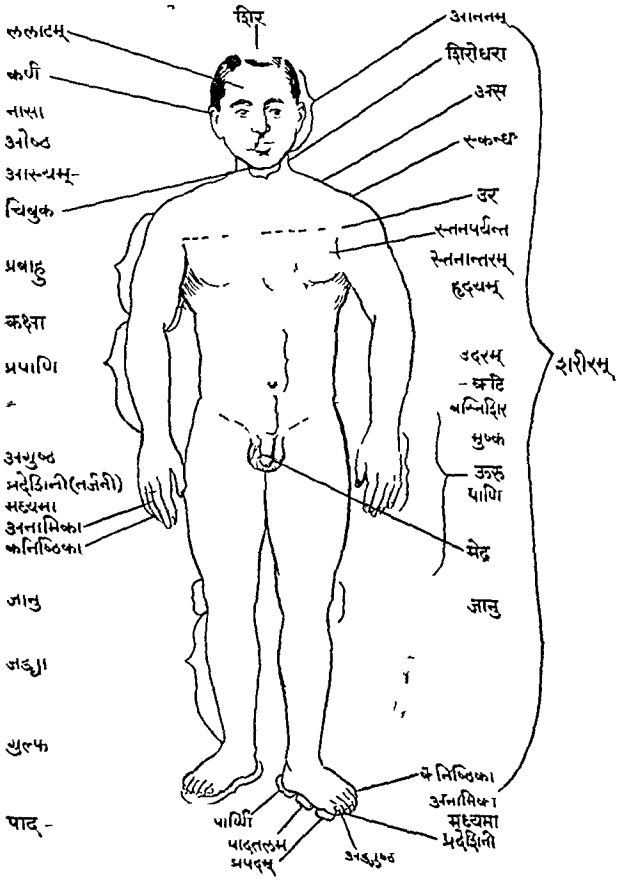 शिर
ललाटम्
कर्ण
नासा
ओष्ठ
आस्यम्-
चिबुक
प्रबाहु
कक्षा
प्रपाणि
अगुष्ठ
प्रदेशिनी(तर्जनी)
मध्यमा
अनामिका
कनिष्ठिका
जानु
जङ्घा
गुल्फ
पाद-
आननम्
शिरोधरा
अस
स्कन्ध
उर
स्तनपर्यन्त
स्तनान्तरम्
हृदयम्
उदरम्
-कटि
बस्तिशिर
मुष्क
ऊरू
पाणि
मेढ्र
जानु
शरीरम्
कनिष्ठिका
अनामिका
मध्यमा
प्रदेशिनी
अङ्गुष्ठ
पार्ष्णि
पादतलम
प्रपदम्